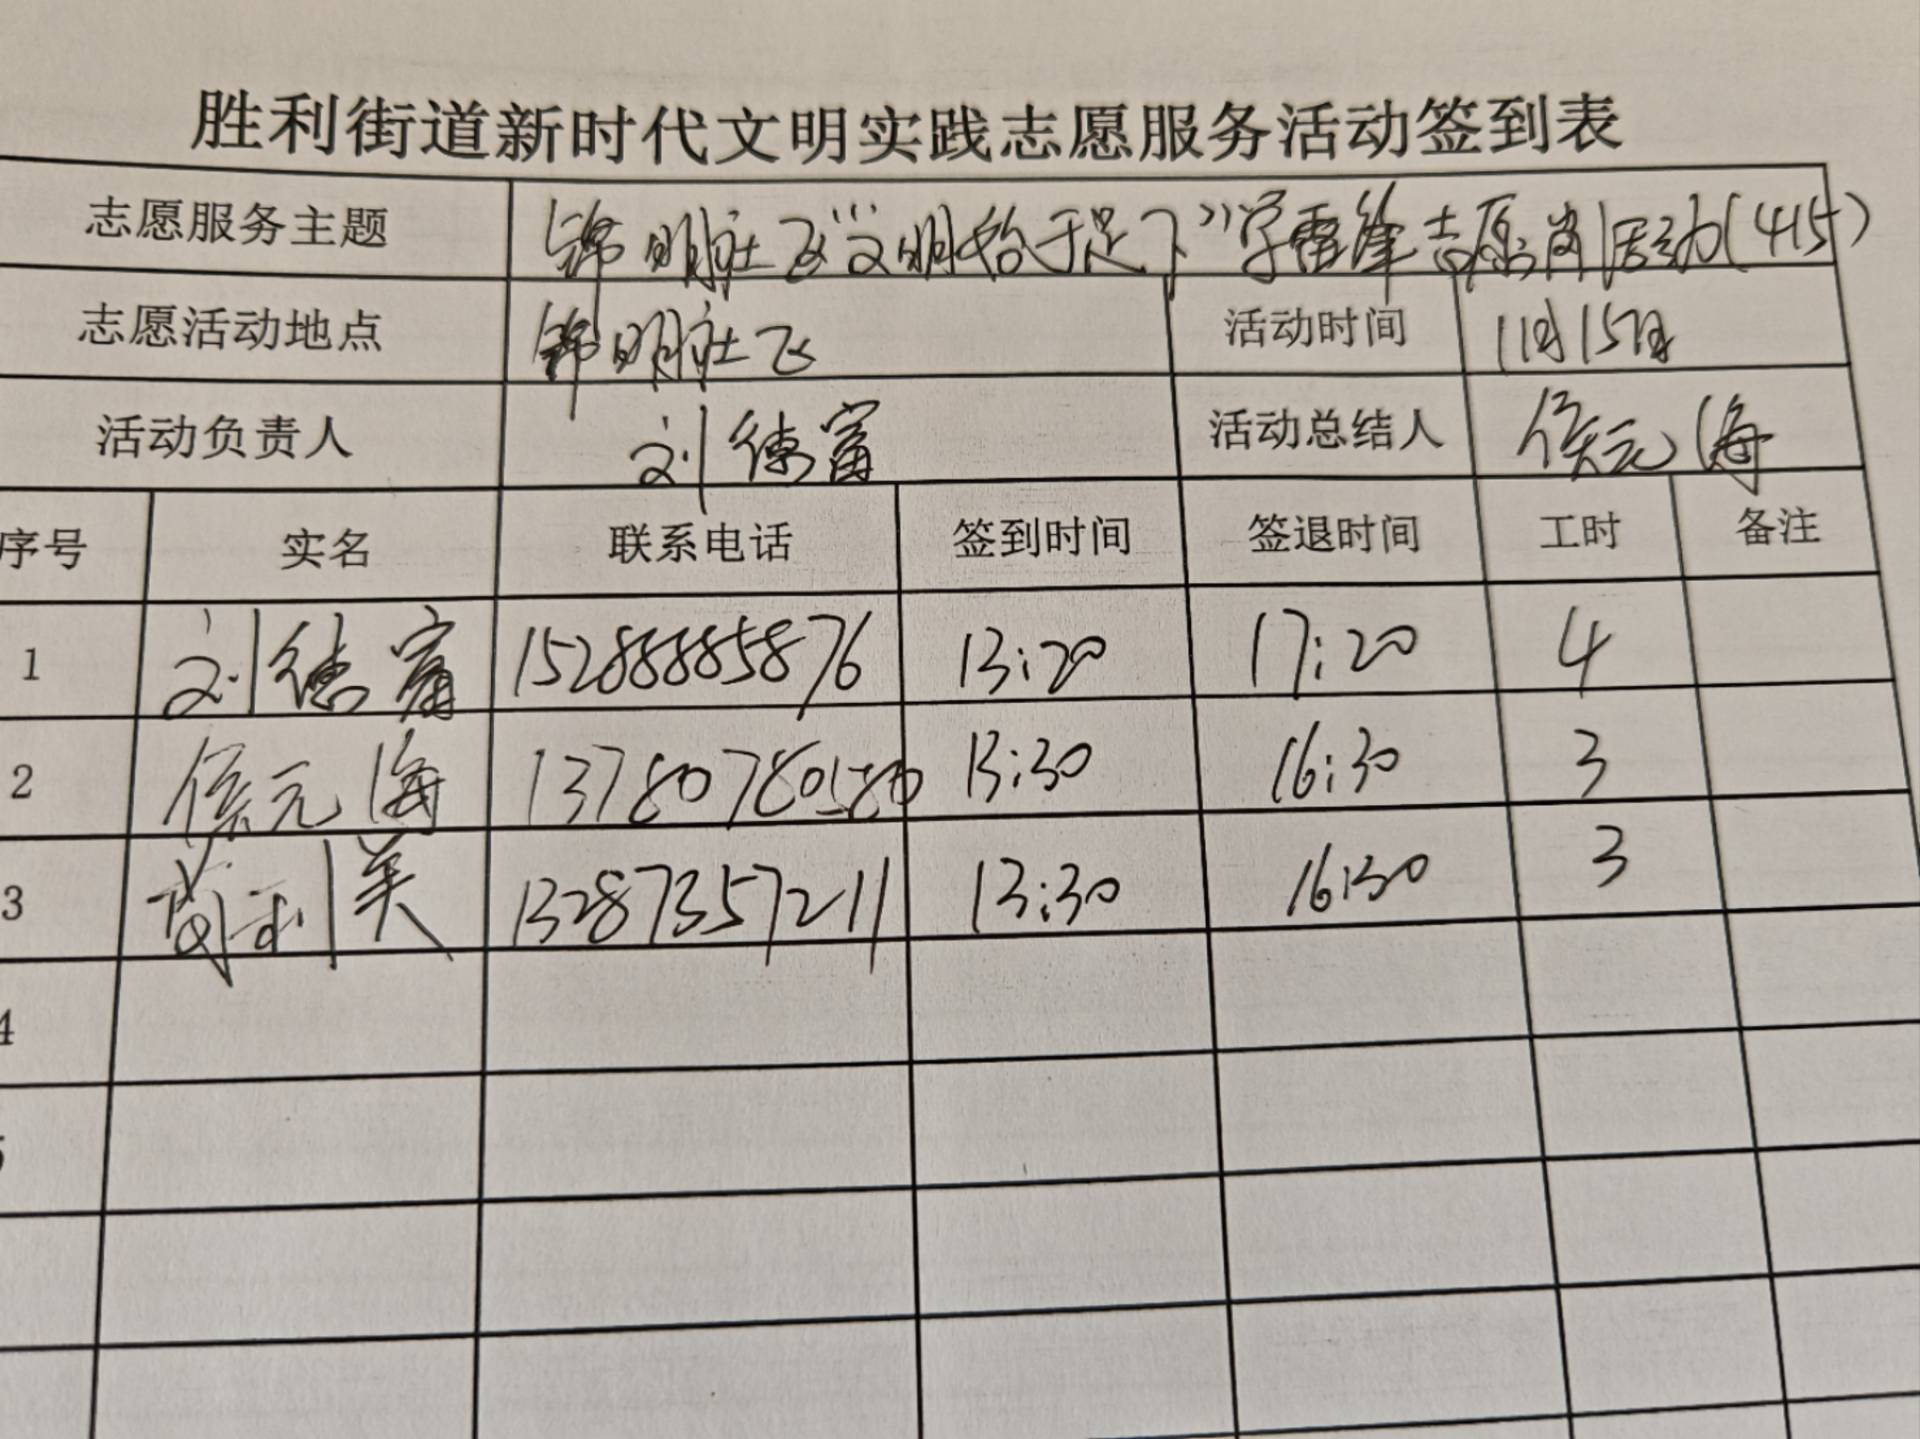 胜利街道新时代文明实践志愿服务活动签到表
志愿服务主题 锦明社区“文明始于足下”学雷锋志愿岗活动(415)
志愿活动地点 锦明社区 活动时间 11月15日
活动负责人 刘德富 活动总结人 侯元海
序号 实名 联系电话 签到时间 签退时间 工时 备注
1 刘德富 15288885876 13:20 17:20 4
2 侯元海 13780780580 13:30 16:30 3
3 利美 13287357211 13:30 16:30 3
4
5